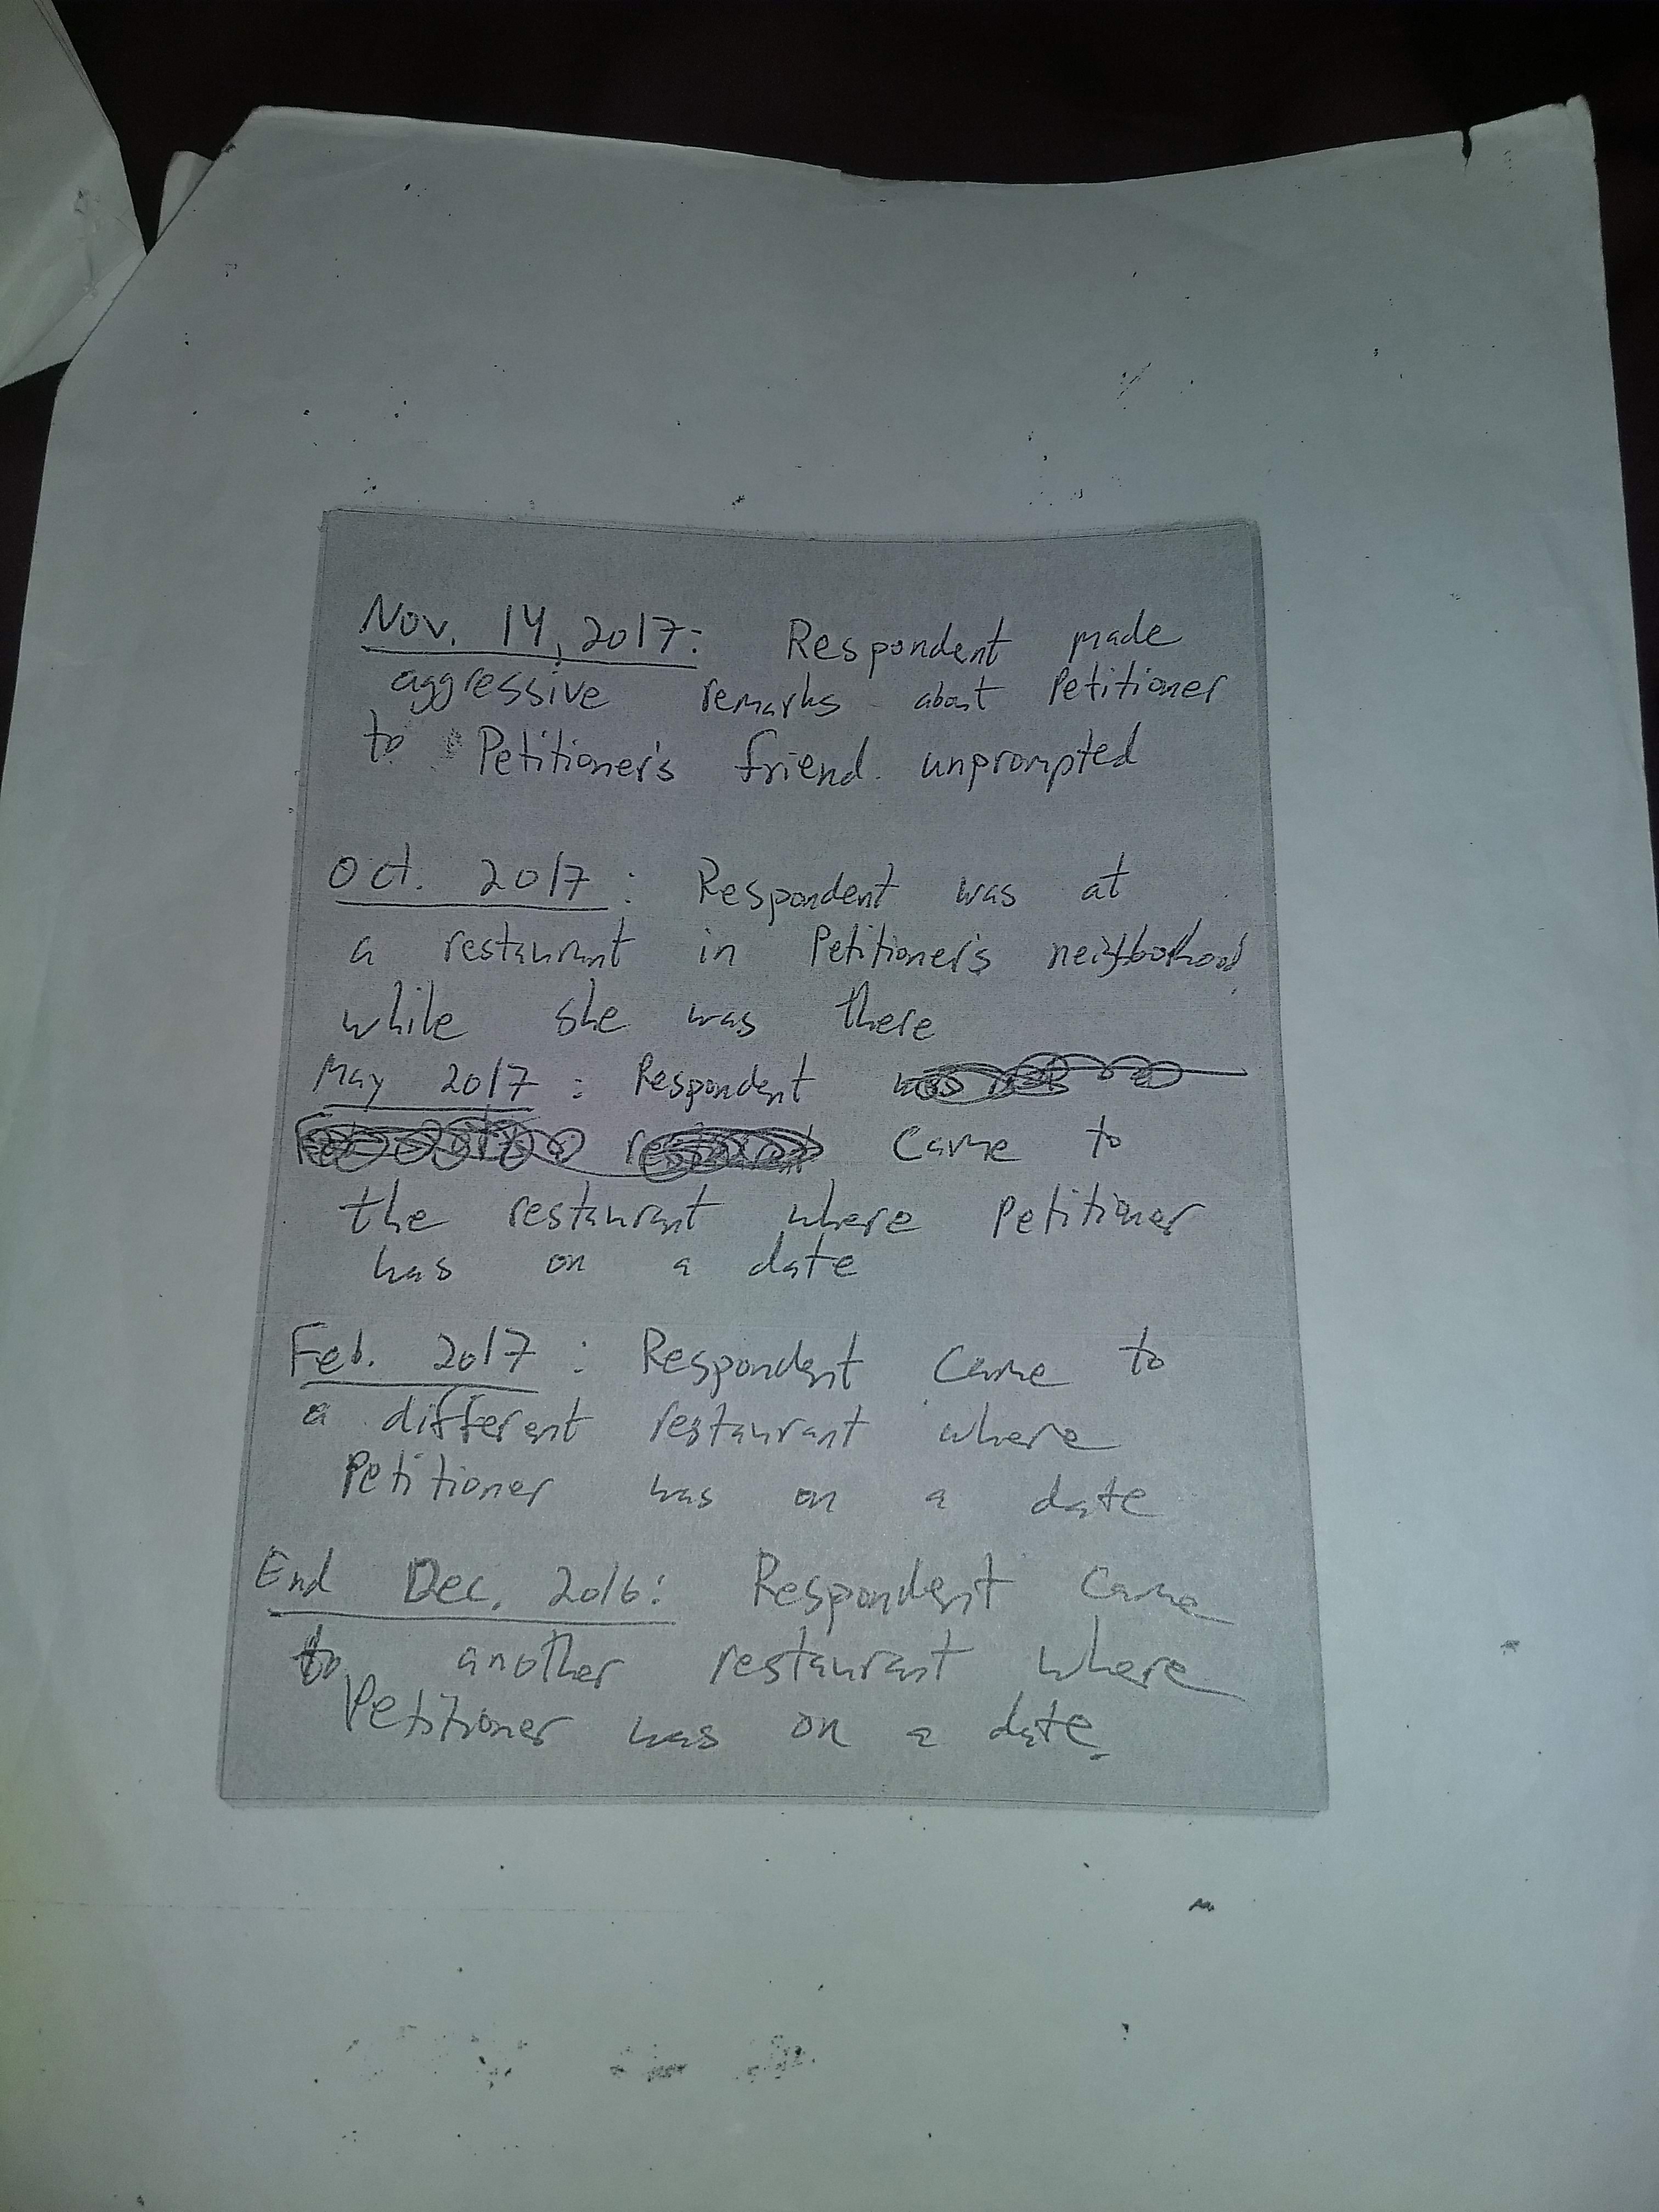 Nov. 14, 2017: Respondent made
aggressive remarks about Petitioner
to Petitioner's friend. unprompted
Oct. 2017: Respondent was at
a restaurant in Petitioner's neighborhood
while she was there
May 2017: Respondent
came to
the restaurant where Petitioner
was on a date
Feb. 2017: Respondent came to
a different restaurant where
Petitioner was on a date
End Dec. 2016: Respondent came
to another restaurant where
Petitioner was on a date.